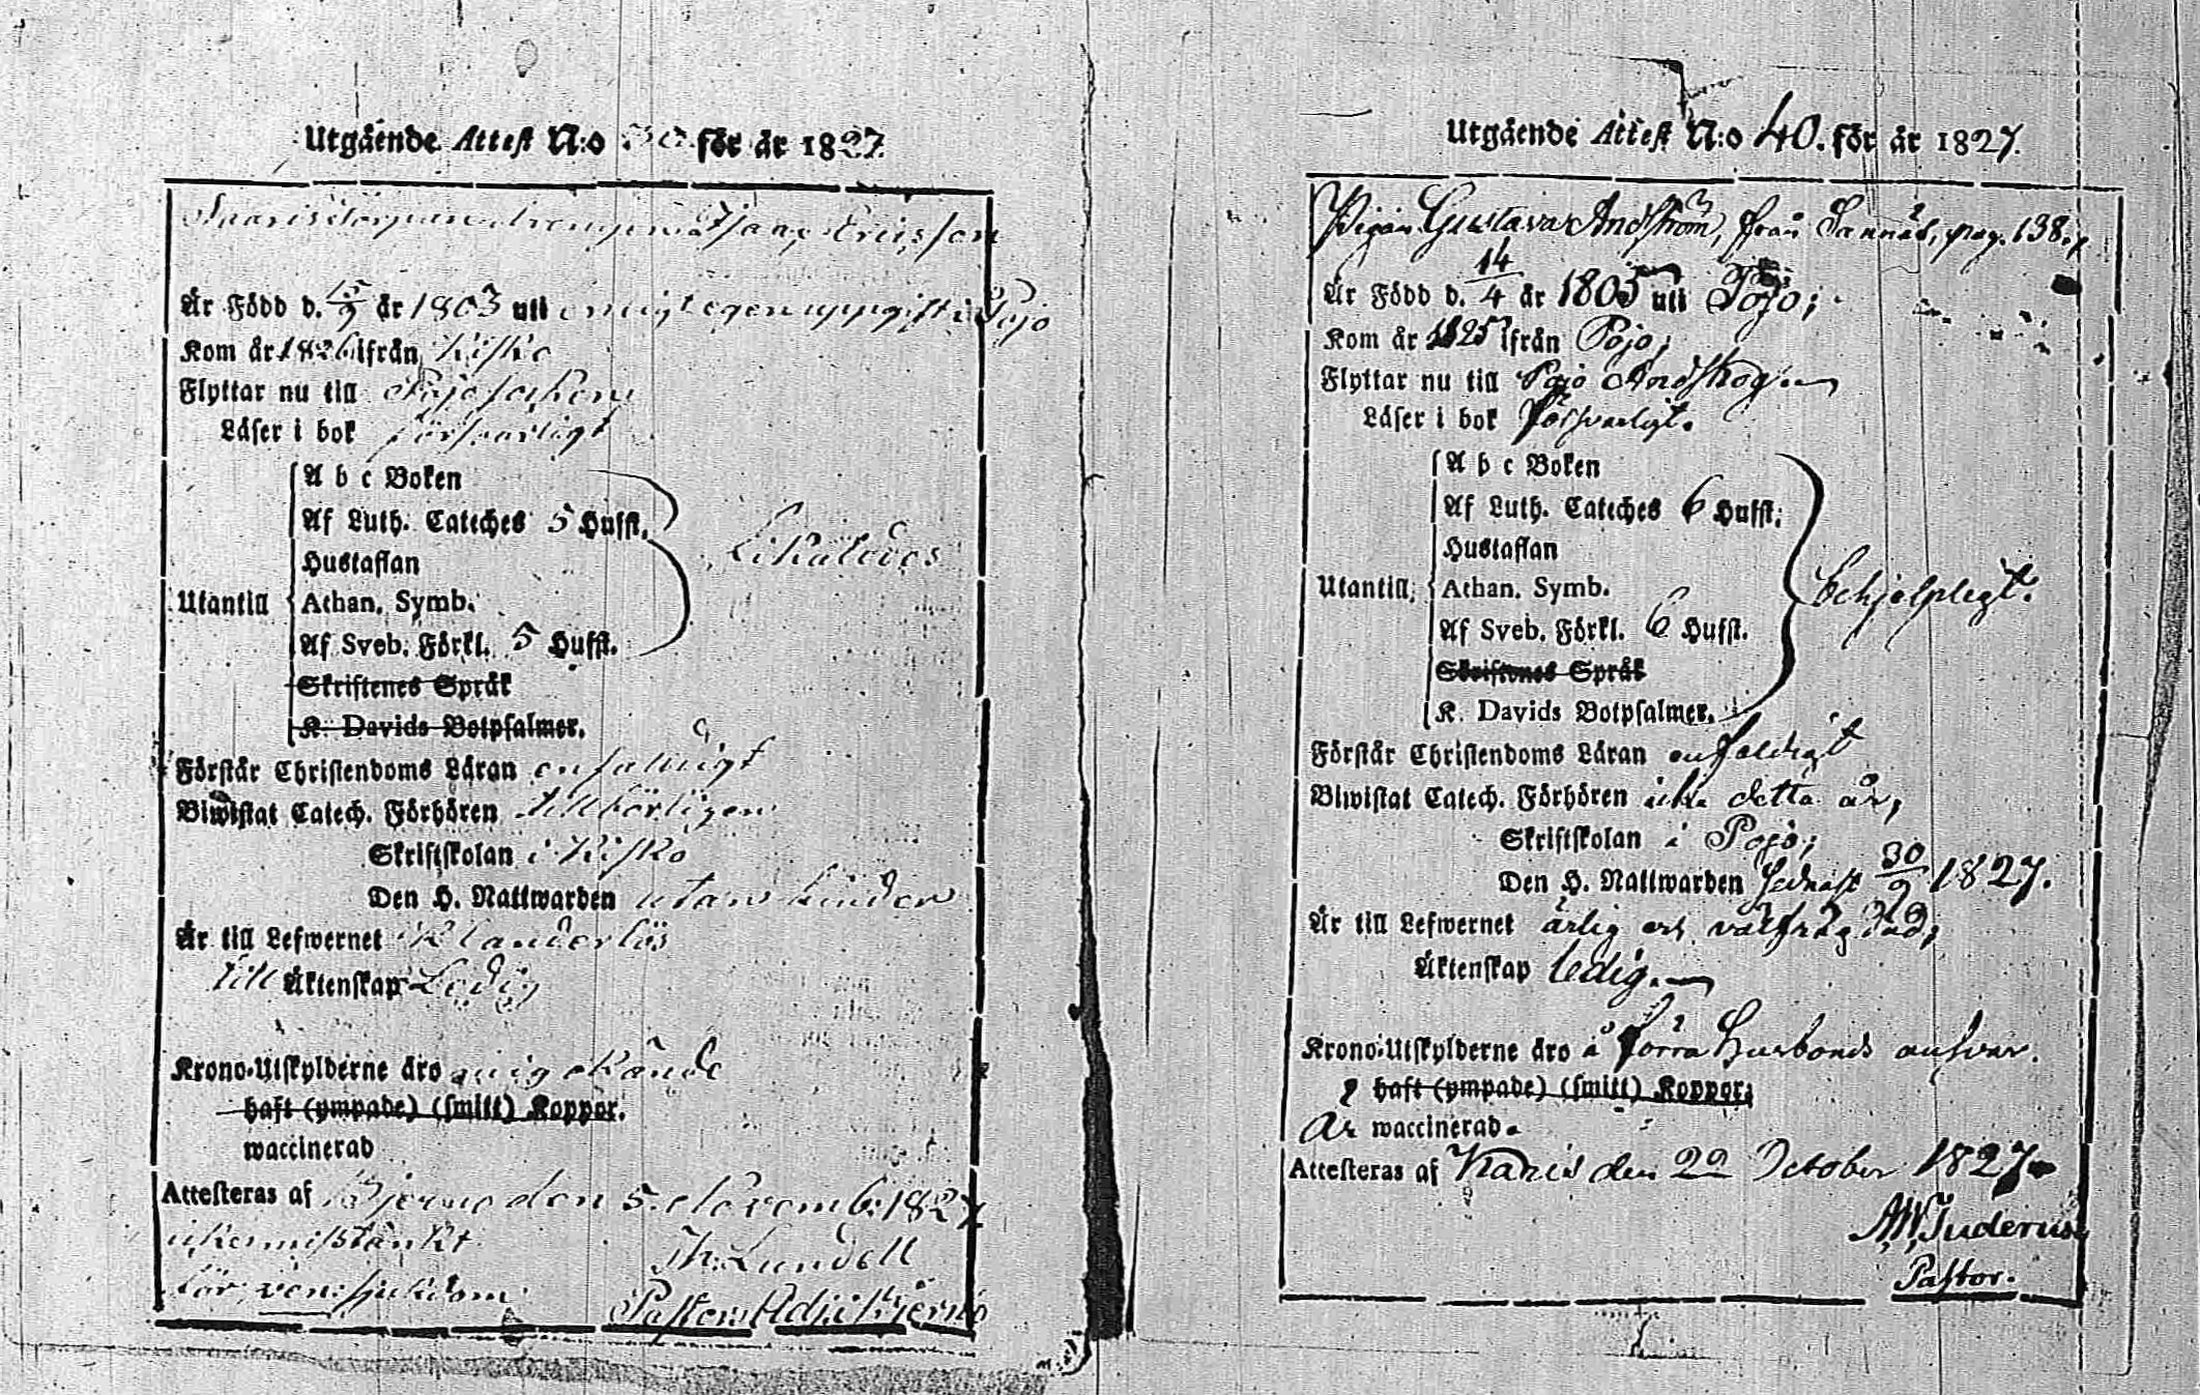 Utgående Attest N:o för år 1827.
Isaac Ericsson
Är Född d. 15/9 år 1803 uti enligt egen uppgift i Pojo
Kom år 1826 ifrån Kisko
Flyttar nu till Pojo socken
Läser i bok försvarligt
Utantill
A b c Boken
Af Luth. Cateches 5 Hufst.
Hustaflan
Athan. Symb.
Af Sveb. Förkl. 5 Hufst.
Skriftenes Språk
K. Davids Botpsalmer.
Likaledes
Förstår Christendoms Läran enfaldigt
Biwistat Catech. Förhören tillbörligen
Skriftskolan i Kisko
Den H. Nattwarden utan hinder
Är till Lefwernet Klanderlös
till Äktenskap Ledig
Krono-Utskylderne äro mig okände
haft (ympade) (smitt) Koppor.
waccinerad
Attesteras af Bjerno den 5. Novemb. 1827
icke misstänkt Th. Lundell
för ven. sjukdom Pastors Adj. i Bjerno
Utgående Attest N:o 40. för år 1827.
Pigan Gustava Andström, från Sannäs, pag. 138.
Är Född d. 14/4 år 1805 uti Pojo;
Kom år 1825 ifrån Pojo;
Flyttar nu till Pojo Andskog
Läser i bok försvarligt.
Utantill;
A b c Boken
Af Luth. Cateches 6 Hufst:
Hustaflan
Athan. Symb.
Af Sveb. Förkl. 6 Hufst.
Skriftenes Språk
K. Davids Botpsalmer.
behjelpligt.
Förstår Christendoms Läran enfaldigt
Biwistat Catech. Förhören icke detta år,
Skriftskolan i Pojo;
Den H. Nattwarden sednast 30/9 1827.
Är till Lefwernet ärlig och välfrägdad;
Äktenskap ledig.
Krono-Utskylderne äro å förra Husbonds ansvar.
haft (ympade) (smitt) Koppor;
Är waccinerad.
Attesteras af Karis den 22 October 1827
A.W. Juderus
Pastor.